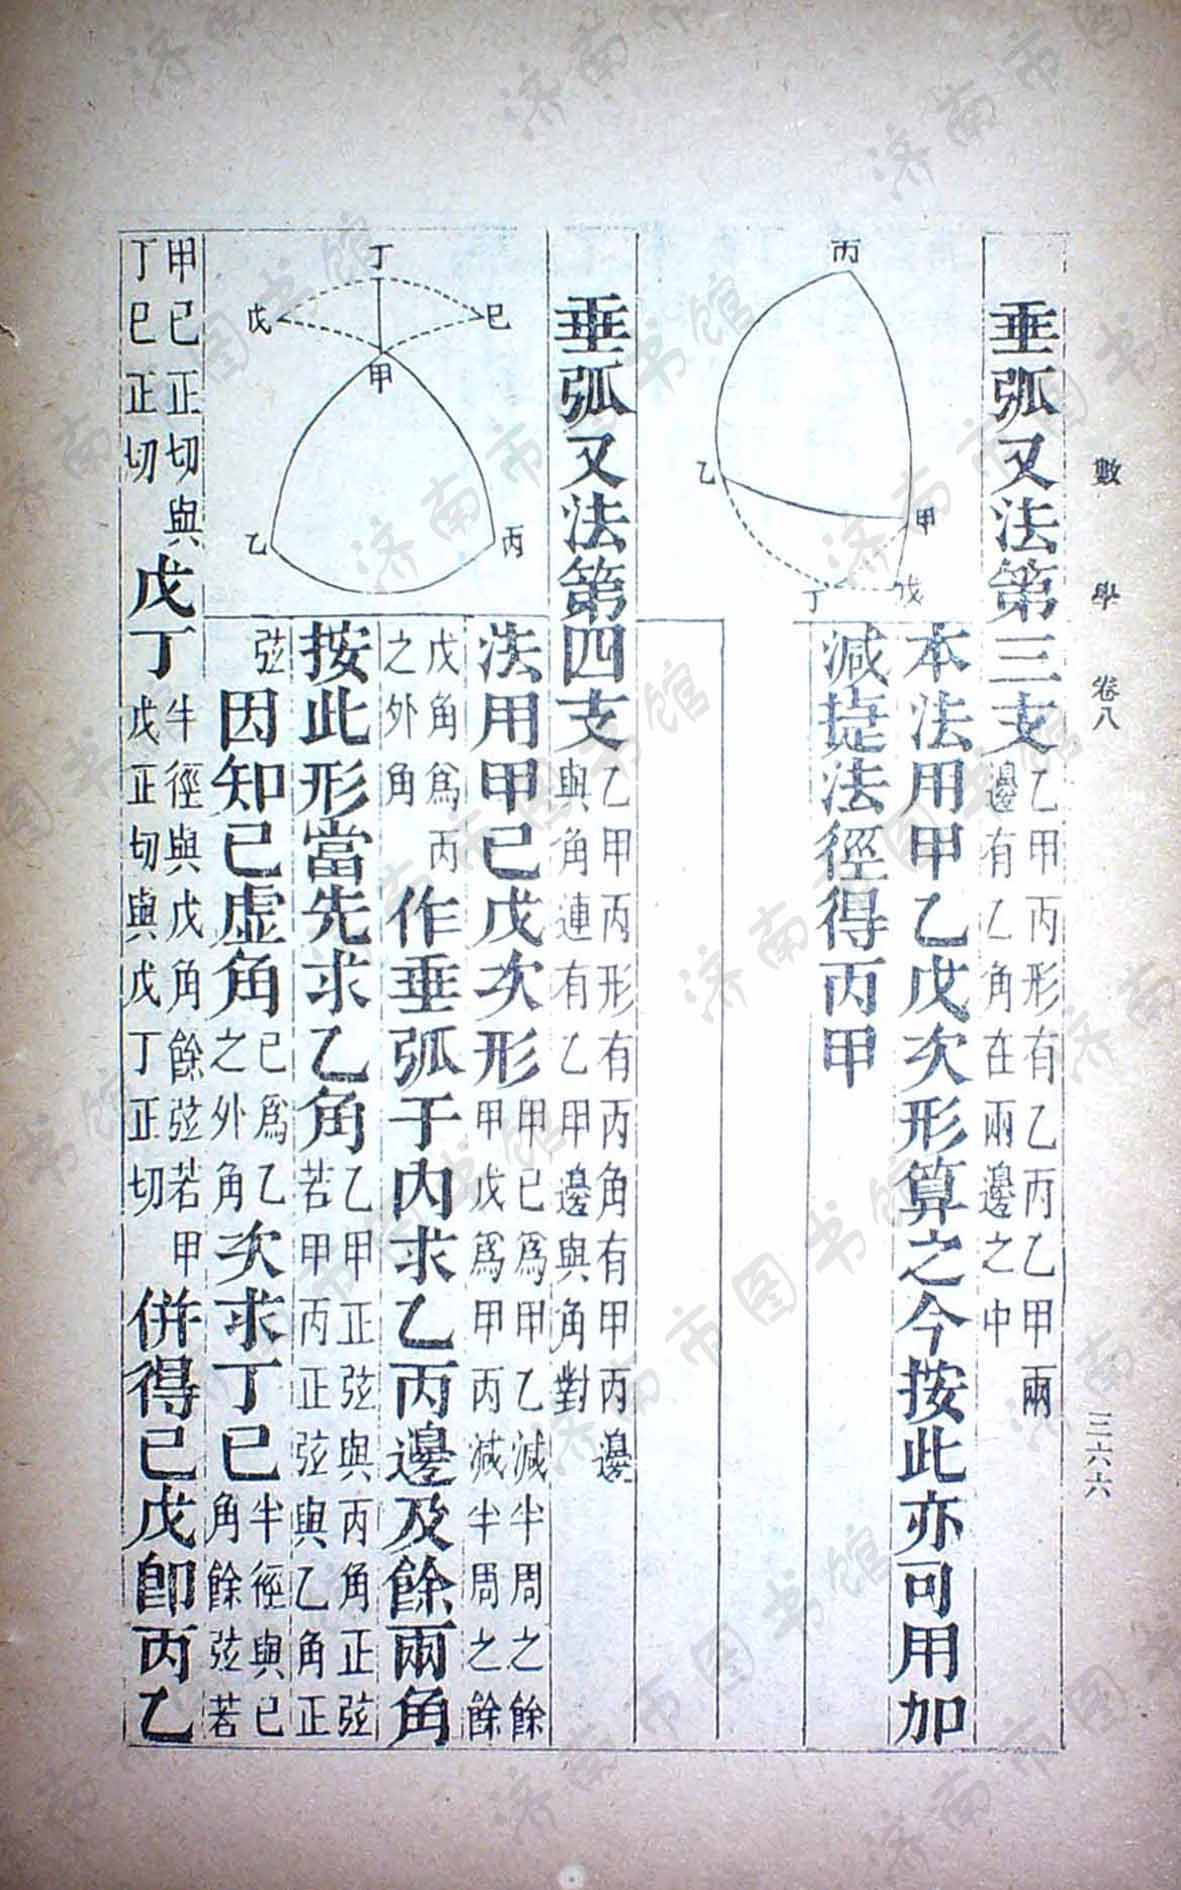 數學 卷八 三六六
垂弧又法第三支乙甲丙形有乙丙乙甲兩
邊有乙角在兩邊之中
本法用甲乙戊次形算之今按此亦可用加
減捷法徑得丙甲
丙
乙
甲
丁
戊
垂弧又法第四支乙甲丙形有丙角有甲丙邊
與角連有乙甲邊與角對
丁
戊
巳
甲
乙
丙
法用甲己戊次形甲已爲甲乙減半周之餘
甲戊爲甲丙減半周之餘
戊角爲丙
之外角
作垂弧于内求乙丙邊及餘兩角
按此形當先求乙角乙甲正弦與丙角正弦
若甲丙正弦與乙角正
弦
因知已虛角已爲乙
之外角
次求丁已半徑與已
角餘弦若
甲已正切與
丁巳正切
戊丁半徑與戊角餘弦若甲
戊正切與戊丁正切
併得己戊卽丙乙
济南市图书馆